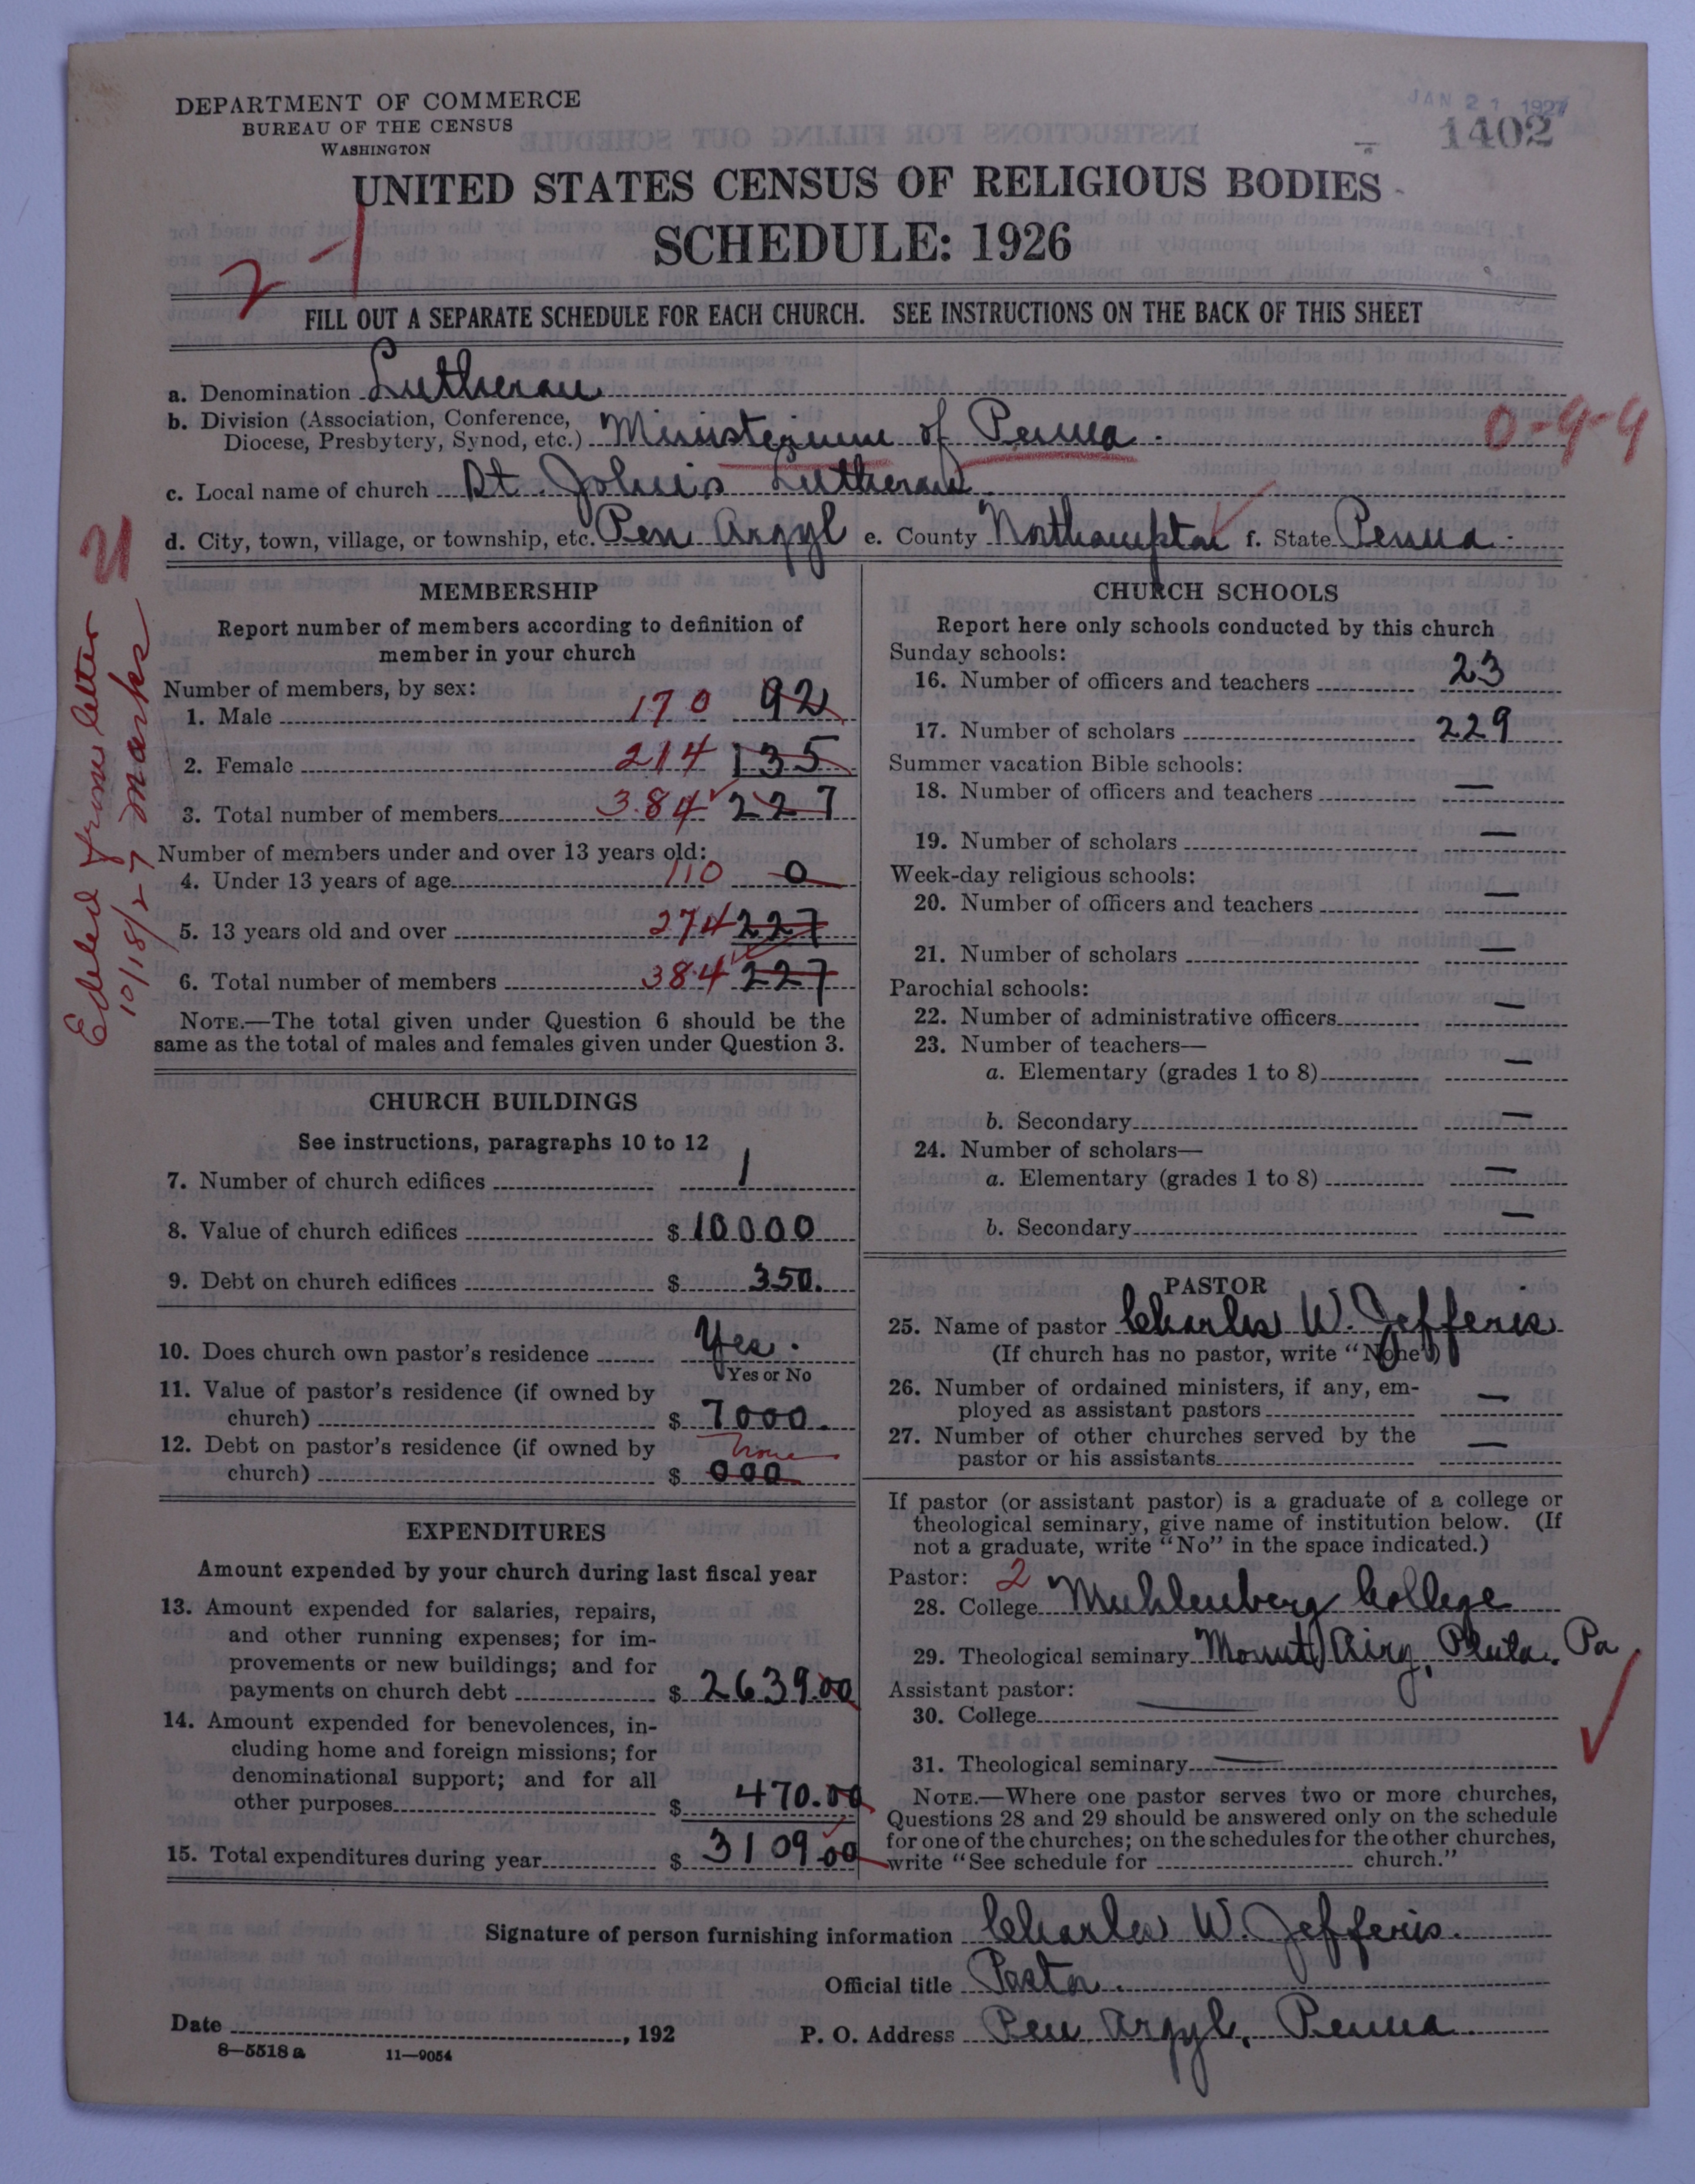 DEPARTMENT OF COMMERCE
BUREAU OF THE CENSUS
WASHINGTON
JAN 21 1927
1402
UNITED STATES CENSUS OF RELIGIOUS BODIES
SCHEDULE: 1926
2-1
FILL OUT A SEPARATE SCHEDULE FOR EACH CHURCH. SEE INSTRUCTIONS ON THE BACK OF THIS SHEET
a. Denomination Lutheran
b. Division (Association, Conference,
Diocese, Presbytery, Synod, etc.) Ministerium of Penna. 0-4-4
c. Local name of church St. John's Lutheran
d. City, town, village, or township, etc. Pen Argyl e. County Northampton f. State Penna.
Edited from letter
10/18/27 Marks
MEMBERSHIP
Report number of members according to definition of
member in your church
Number of members, by sex:
1. Male 170 92
2. Female 214 135
3. Total number of members 384 227
Number of members under and over 13 years old:
4. Under 13 years of age 110 0
5. 13 years old and over 274 227
6. Total number of members 384 227
NOTE.—The total given under Question 6 should be the
same as the total of males and females given under Question 3.
CHURCH BUILDINGS
See instructions, paragraphs 10 to 12
7. Number of church edifices 1
8. Value of church edifices $ 10000
9. Debt on church edifices $ 350.
10. Does church own pastor's residence Yes.
Yes or No
11. Value of pastor's residence (if owned by
church) $ 7000.
12. Debt on pastor's residence (if owned by None
church) $ 000
EXPENDITURES
Amount expended by your church during last fiscal year
13. Amount expended for salaries, repairs,
and other running expenses; for im-
provements or new buildings; and for
payments on church debt $ 2639.00
14. Amount expended for benevolences, in-
cluding home and foreign missions; for
denominational support; and for all
other purposes $ 470.00
15. Total expenditures during year $ 3109.00
CHURCH SCHOOLS
Report here only schools conducted by this church
Sunday schools:
16. Number of officers and teachers 23
17. Number of scholars 229
Summer vacation Bible schools:
18. Number of officers and teachers —
19. Number of scholars —
Week-day religious schools:
20. Number of officers and teachers —
21. Number of scholars —
Parochial schools:
22. Number of administrative officers —
23. Number of teachers—
a. Elementary (grades 1 to 8) —
b. Secondary —
24. Number of scholars—
a. Elementary (grades 1 to 8) —
b. Secondary —
PASTOR
25. Name of pastor Charles W. Jefferis
(If church has no pastor, write "None")
26. Number of ordained ministers, if any, em-
ployed as assistant pastors —
27. Number of other churches served by the
pastor or his assistants —
If pastor (or assistant pastor) is a graduate of a college or
theological seminary, give name of institution below. (If
not a graduate, write "No" in the space indicated.)
Pastor: 2
28. College Muhlenberg College
29. Theological seminary Mount Airy, Phila. Pa
Assistant pastor:
30. College —
31. Theological seminary —
NOTE.—Where one pastor serves two or more churches,
Questions 28 and 29 should be answered only on the schedule
for one of the churches; on the schedules for the other churches,
write "See schedule for church."
Signature of person furnishing information Charles W. Jefferis.
Official title Pastor.
Date , 192 P. O. Address Pen Argyl, Penna
8—5518 a 11—9054